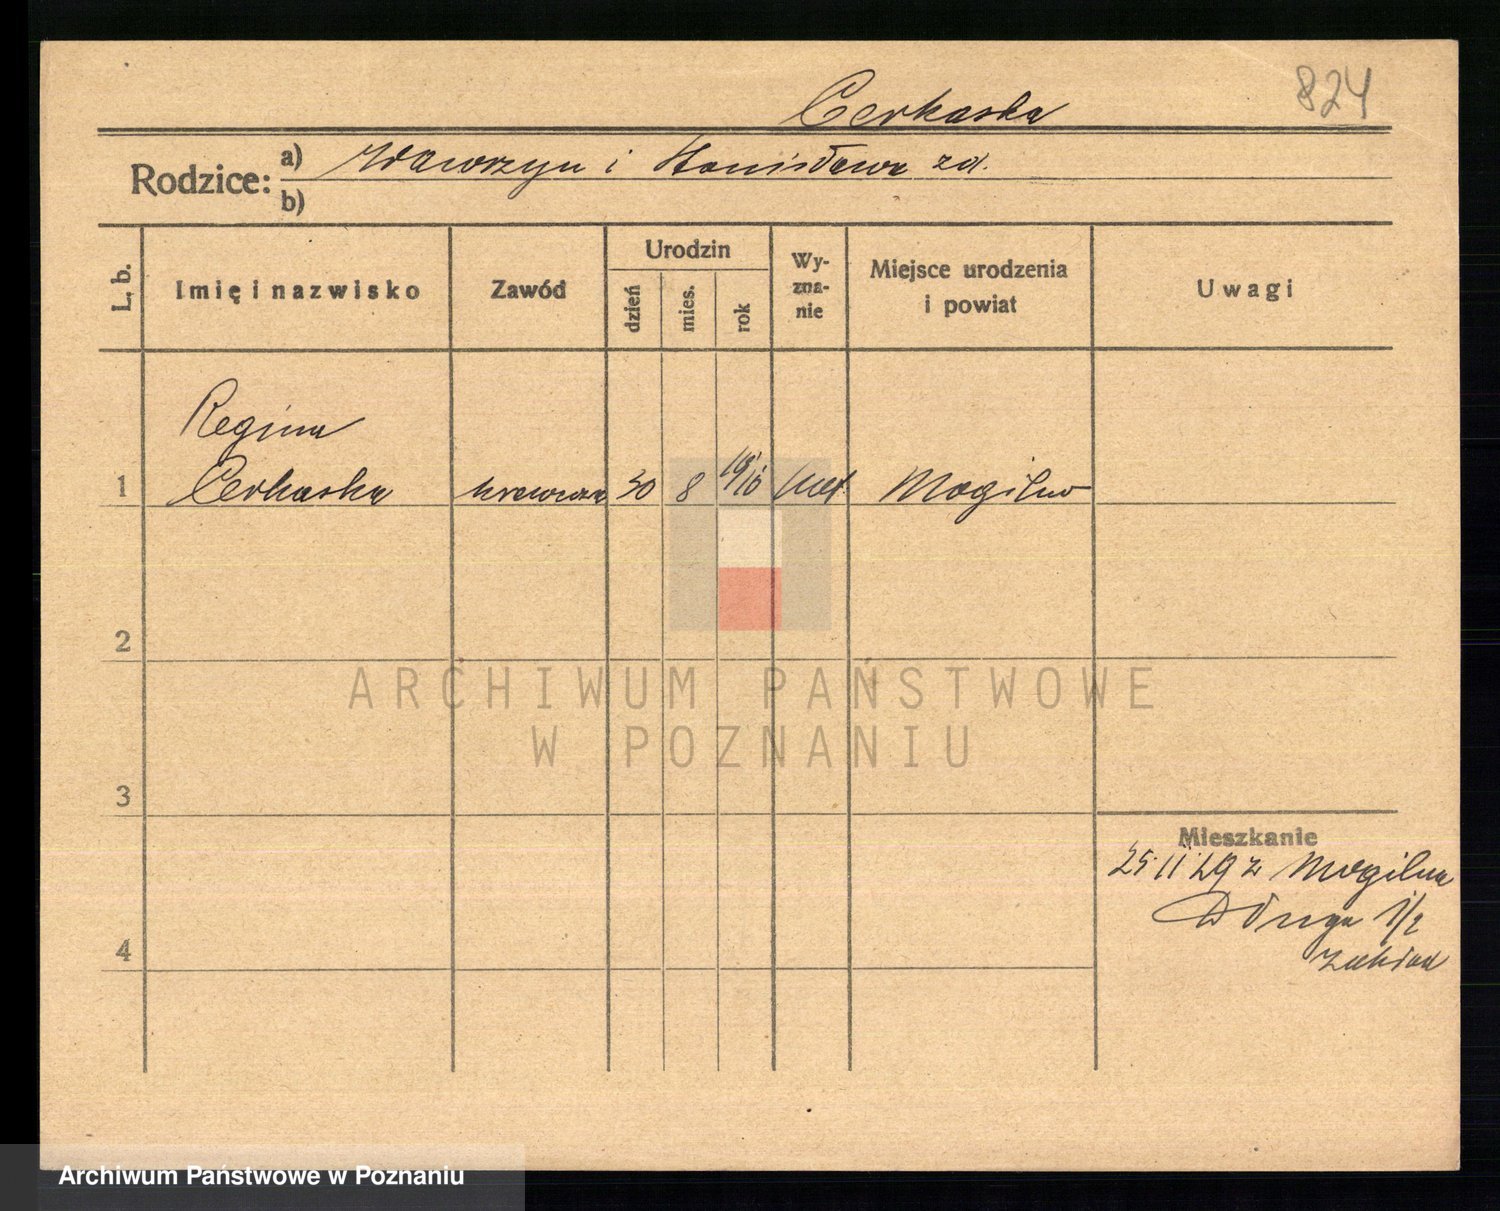 824
Cerkaska
Rodzice: a) Wawrzyn i Stanisława zd.
b)
L. b. Imię i nazwisko Zawód Urodzin dzień mies. rok Wy-zna-nie Miejsce urodzenia i powiat Uwagi
Regina
1 Cerkaska krawcza 30 8 1910 kat Mogilno
2
ARCHIWUM PAŃSTWOWE
W POZNANIU
3
Mieszkanie
25.11.29 z Mogilna
Długa 1/2
4
Archiwum Państwowe w Poznaniu